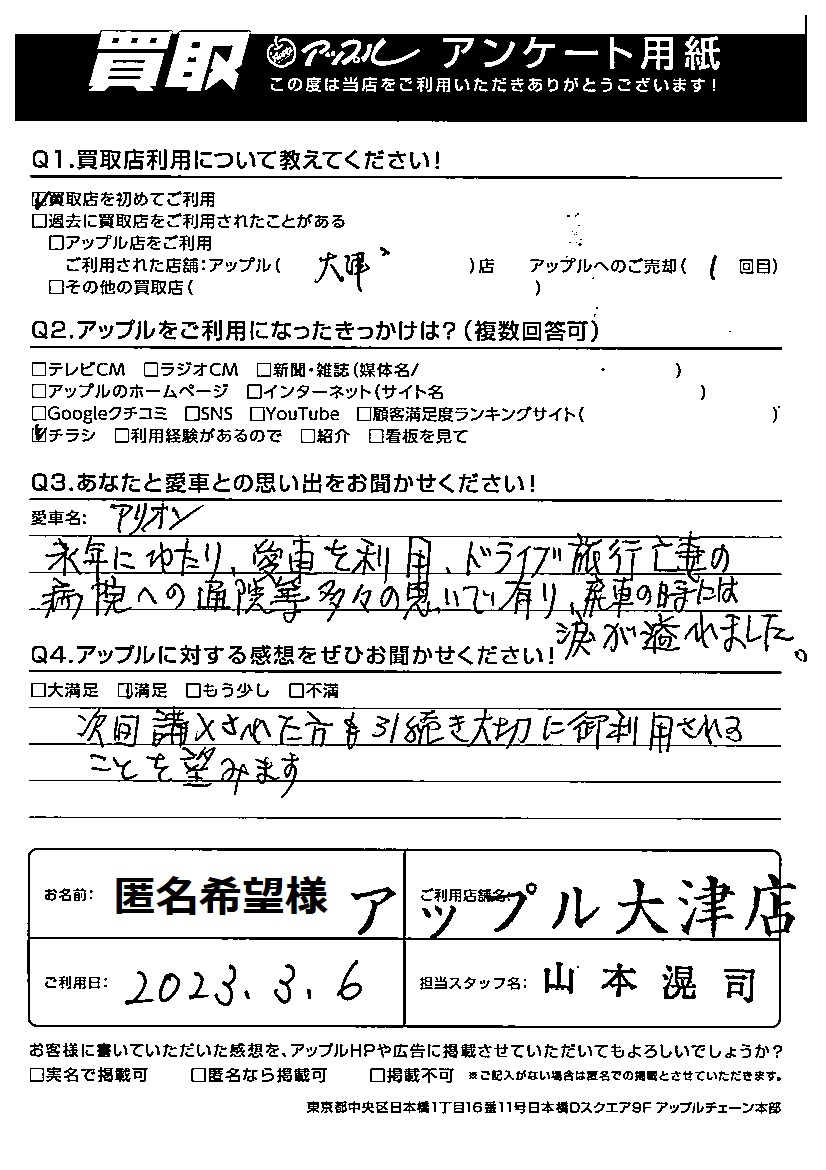 買取 アップル アンケート用紙
この度は当店をご利用いただきありがとうございます!
Q1.買取店利用について教えてください!
☑買取店を初めてご利用
□過去に買取店をご利用されたことがある
□アップル店をご利用
ご利用された店舗:アップル( 大津 )店 アップルへのご売却( 1 回目)
□その他の買取店( )
Q2.アップルをご利用になったきっかけは?(複数回答可)
□テレビCM □ラジオCM □新聞・雑誌(媒体名/ )
□アップルのホームページ □インターネット(サイト名 )
□Googleクチコミ □SNS □YouTube □顧客満足度ランキングサイト( )
☑チラシ □利用経験があるので □紹介 □看板を見て
Q3.あなたと愛車との思い出をお聞かせください!
愛車名: アリオン
永年にわたり、愛車を利用、ドライブ旅行亡妻の
病院への通院等多々の思いで有り、廃車の時には
涙が溢れました。
Q4.アップルに対する感想をぜひお聞かせください!
□大満足 ☑満足 □もう少し □不満
次回購入された方も引続き大切に御利用される
ことを望みます
お名前: 匿名希望様
ご利用店舗名: アップル大津店
ご利用日: 2023.3.6
担当スタッフ名: 山本滉司
お客様に書いていただいた感想を、アップルHPや広告に掲載させていただいてもよろしいでしょうか?
□実名で掲載可 □匿名なら掲載可 □掲載不可 ※ご記入がない場合は匿名での掲載とさせていただきます。
東京都中央区日本橋1丁目16番11号日本橋Dスクエア9F アップルチェーン本部